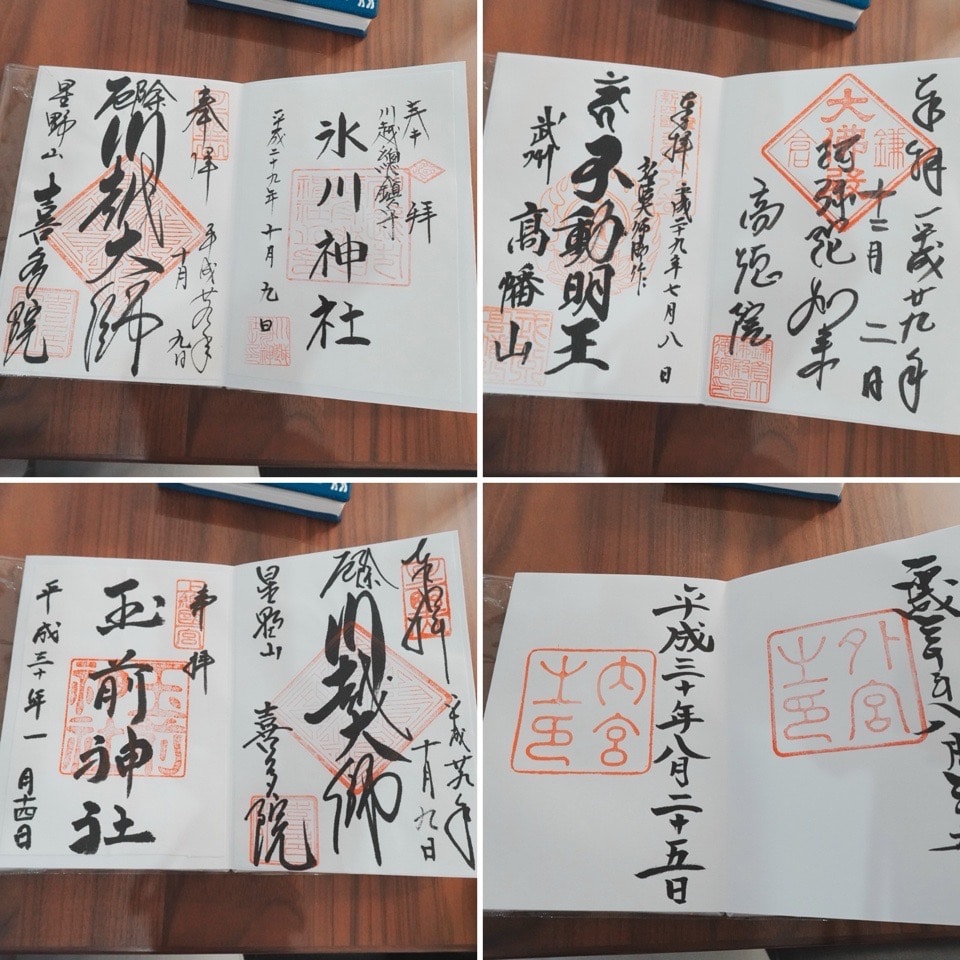 奉拝
川越總鎮守
氷川神社
平成二十九年十月九日
奉拝
平成廿九年
十月九日
川越大師
星野山
喜多院
奉拝 平成廿九年
十二月二日
大佛殿
鎌倉
阿弥陀如来
高徳院
奉拝 平成二十九年七月八日
不動明王
武州
高幡山
奉拝
平成廿九年
十月九日
川越大師
星野山
喜多院
奉拝
玉前神社
平成三十年一月十四日
外宮之印
平成三十年八月
内宮之印
平成三十年八月二十五日